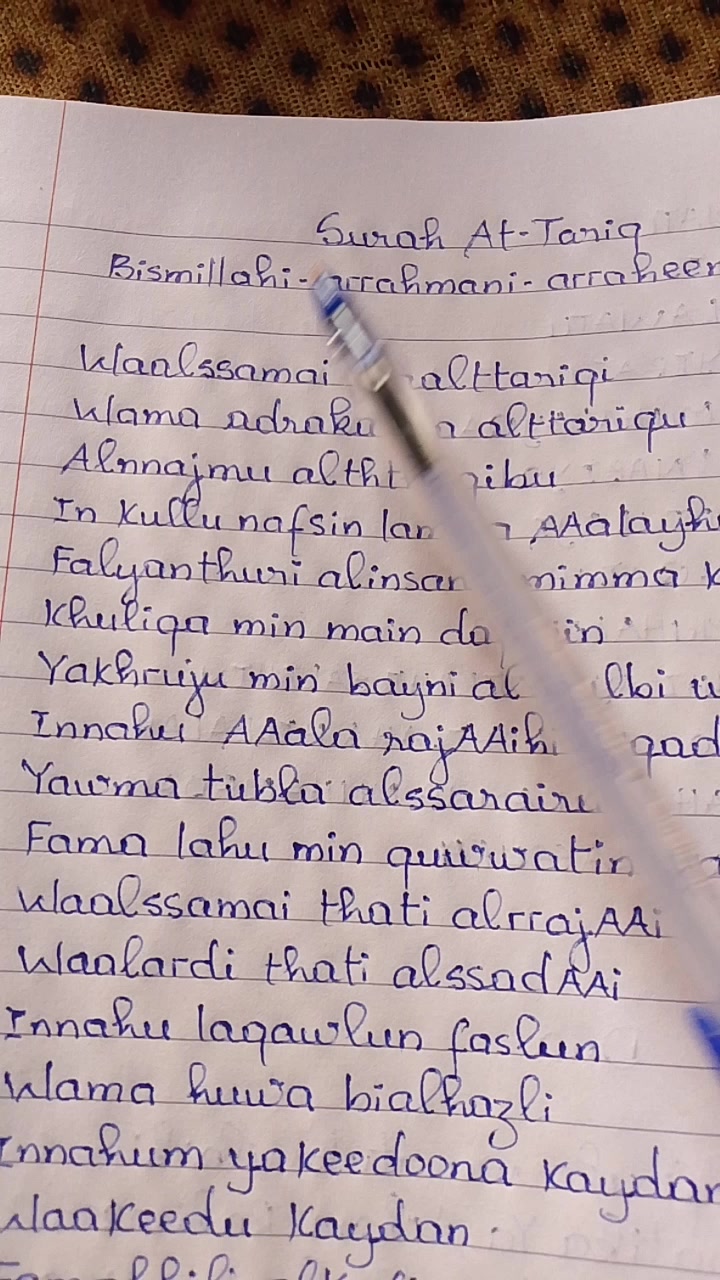 Surah At-Tariq
Bismillahi-arrahmani-arraheem
Waalssamai alttariqi
Wama adraka alttariqu
Alnnajmu
In kullu nafsin AAalayh
Falyanthuri alinsan mimma
Khuliqa min main
Yakhruju min bayni
Innahu AAala rajAAih qad
Yawma tubla alssarairu
Fama lahu min quwwatin
Waalssamai thati alrrajAAi
Waalardi thati alssadAAi
Innahu laqawlun faslun
Wama huwa bialhazli
Innahum yakeedoona kaydan
Waakeedu kaydan